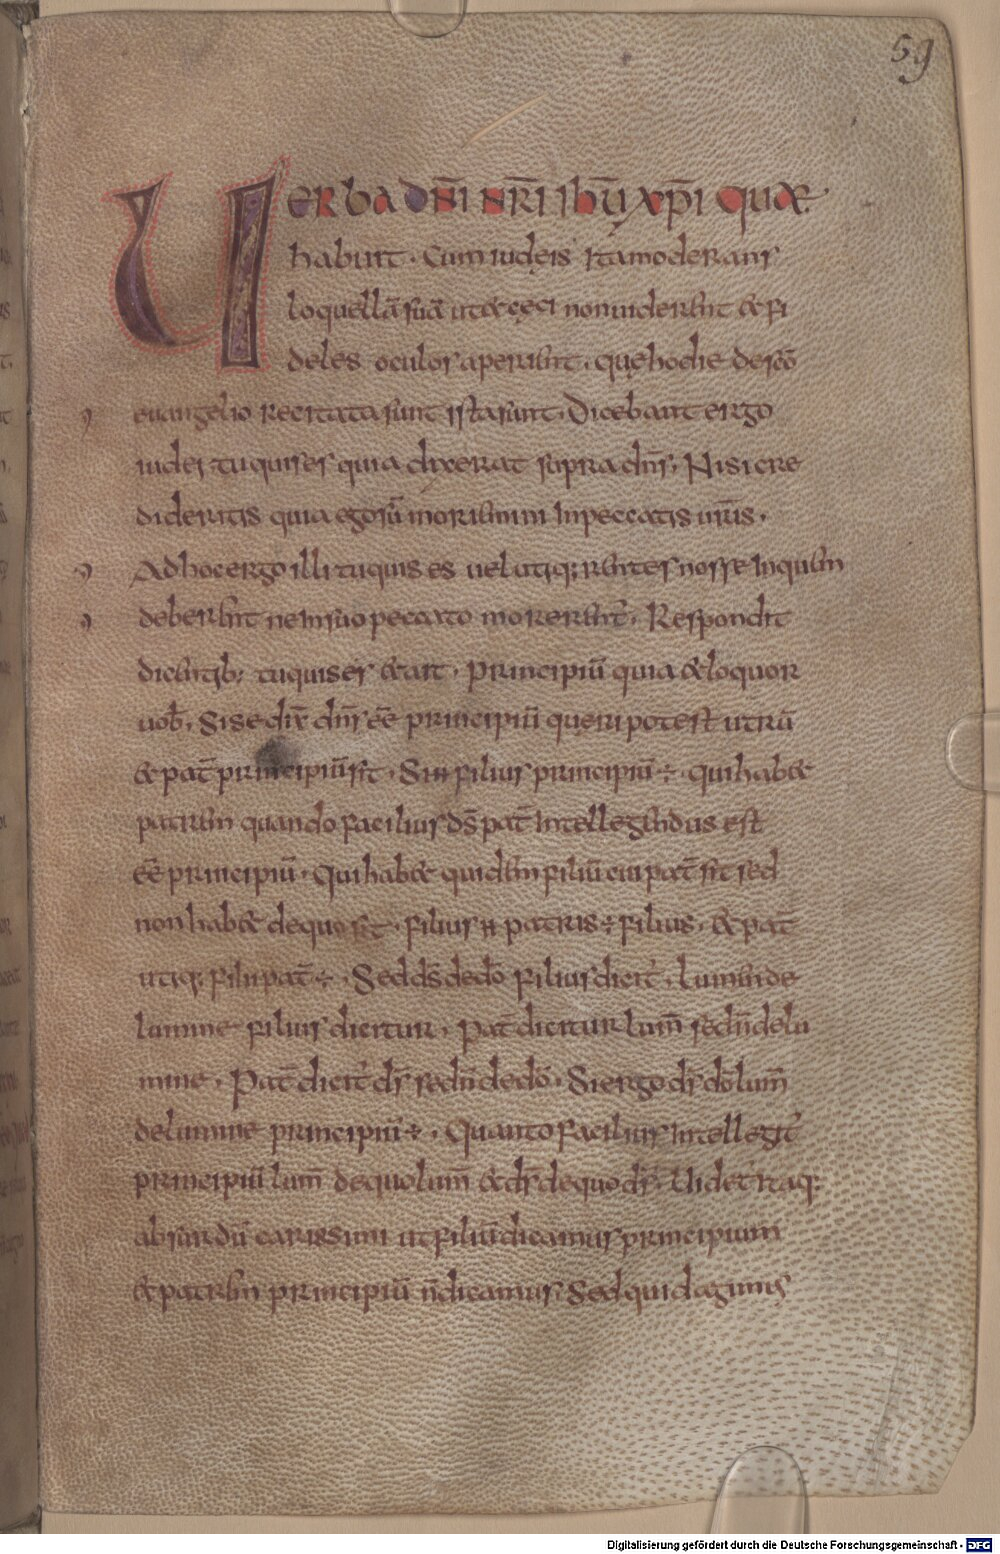 59
UERba dn̄i nr̄i ihū xp̄i quae
habuit · Cum iudeis ita moderans
loquellā suā ut & cęci non uiderent & fi
deles oculos aperirent · quę hodie de scō
euangelio recitata sunt ista sunt · Dicebant ergo
iudei tu quis es quia dixerat supra dn̄s · Nisi cre
dideritis quia ego sū moriemini in peccatis ur̄is ·
Ad hoc ergo illi tu quis es uelut q; rentes nosse in quem
deberent ne in suo peccato morerent̄ · Respondit
dicentib; tu quis es & ait · principiū quia & loquor
uob̄ · Si se dix̄ dn̄s eē principiū queri potest utrū
& pat̄ principiū sit · Si ħ filius principiū ÷ · qui hab&
patrem quando facilius ds̄ pat̄ intellegendus est
eē principiū · Qui hab& quidem filiū cui pat̄ sit sed
non hab& de quo sit · filius ħ patris ÷ filius · & pat̄
utiq; filii pat̄ ÷ · Sed ds̄ de dō filius dicit̄ · lumen de
lumine filius dicitur · Pat̄ dicitur lum̄ sed n̄ de lu
mine · Pat̄ dicit̄ ds̄ sed n̄ de dō · Si ergo ds̄ de dō lum̄
de lumine principiū ÷ · Quanto facilius intellegit̄
principiū lum̄ de quo lum̄ & ds̄ de quo ds̄ · Uidet̄ itaq;
absurdū carissimi ut filiū dicamus principium
& patrem principiū n̄ dicamus · Sed quid agimus
Digitalisierung gefördert durch die Deutsche Forschungsgemeinschaft - DFG